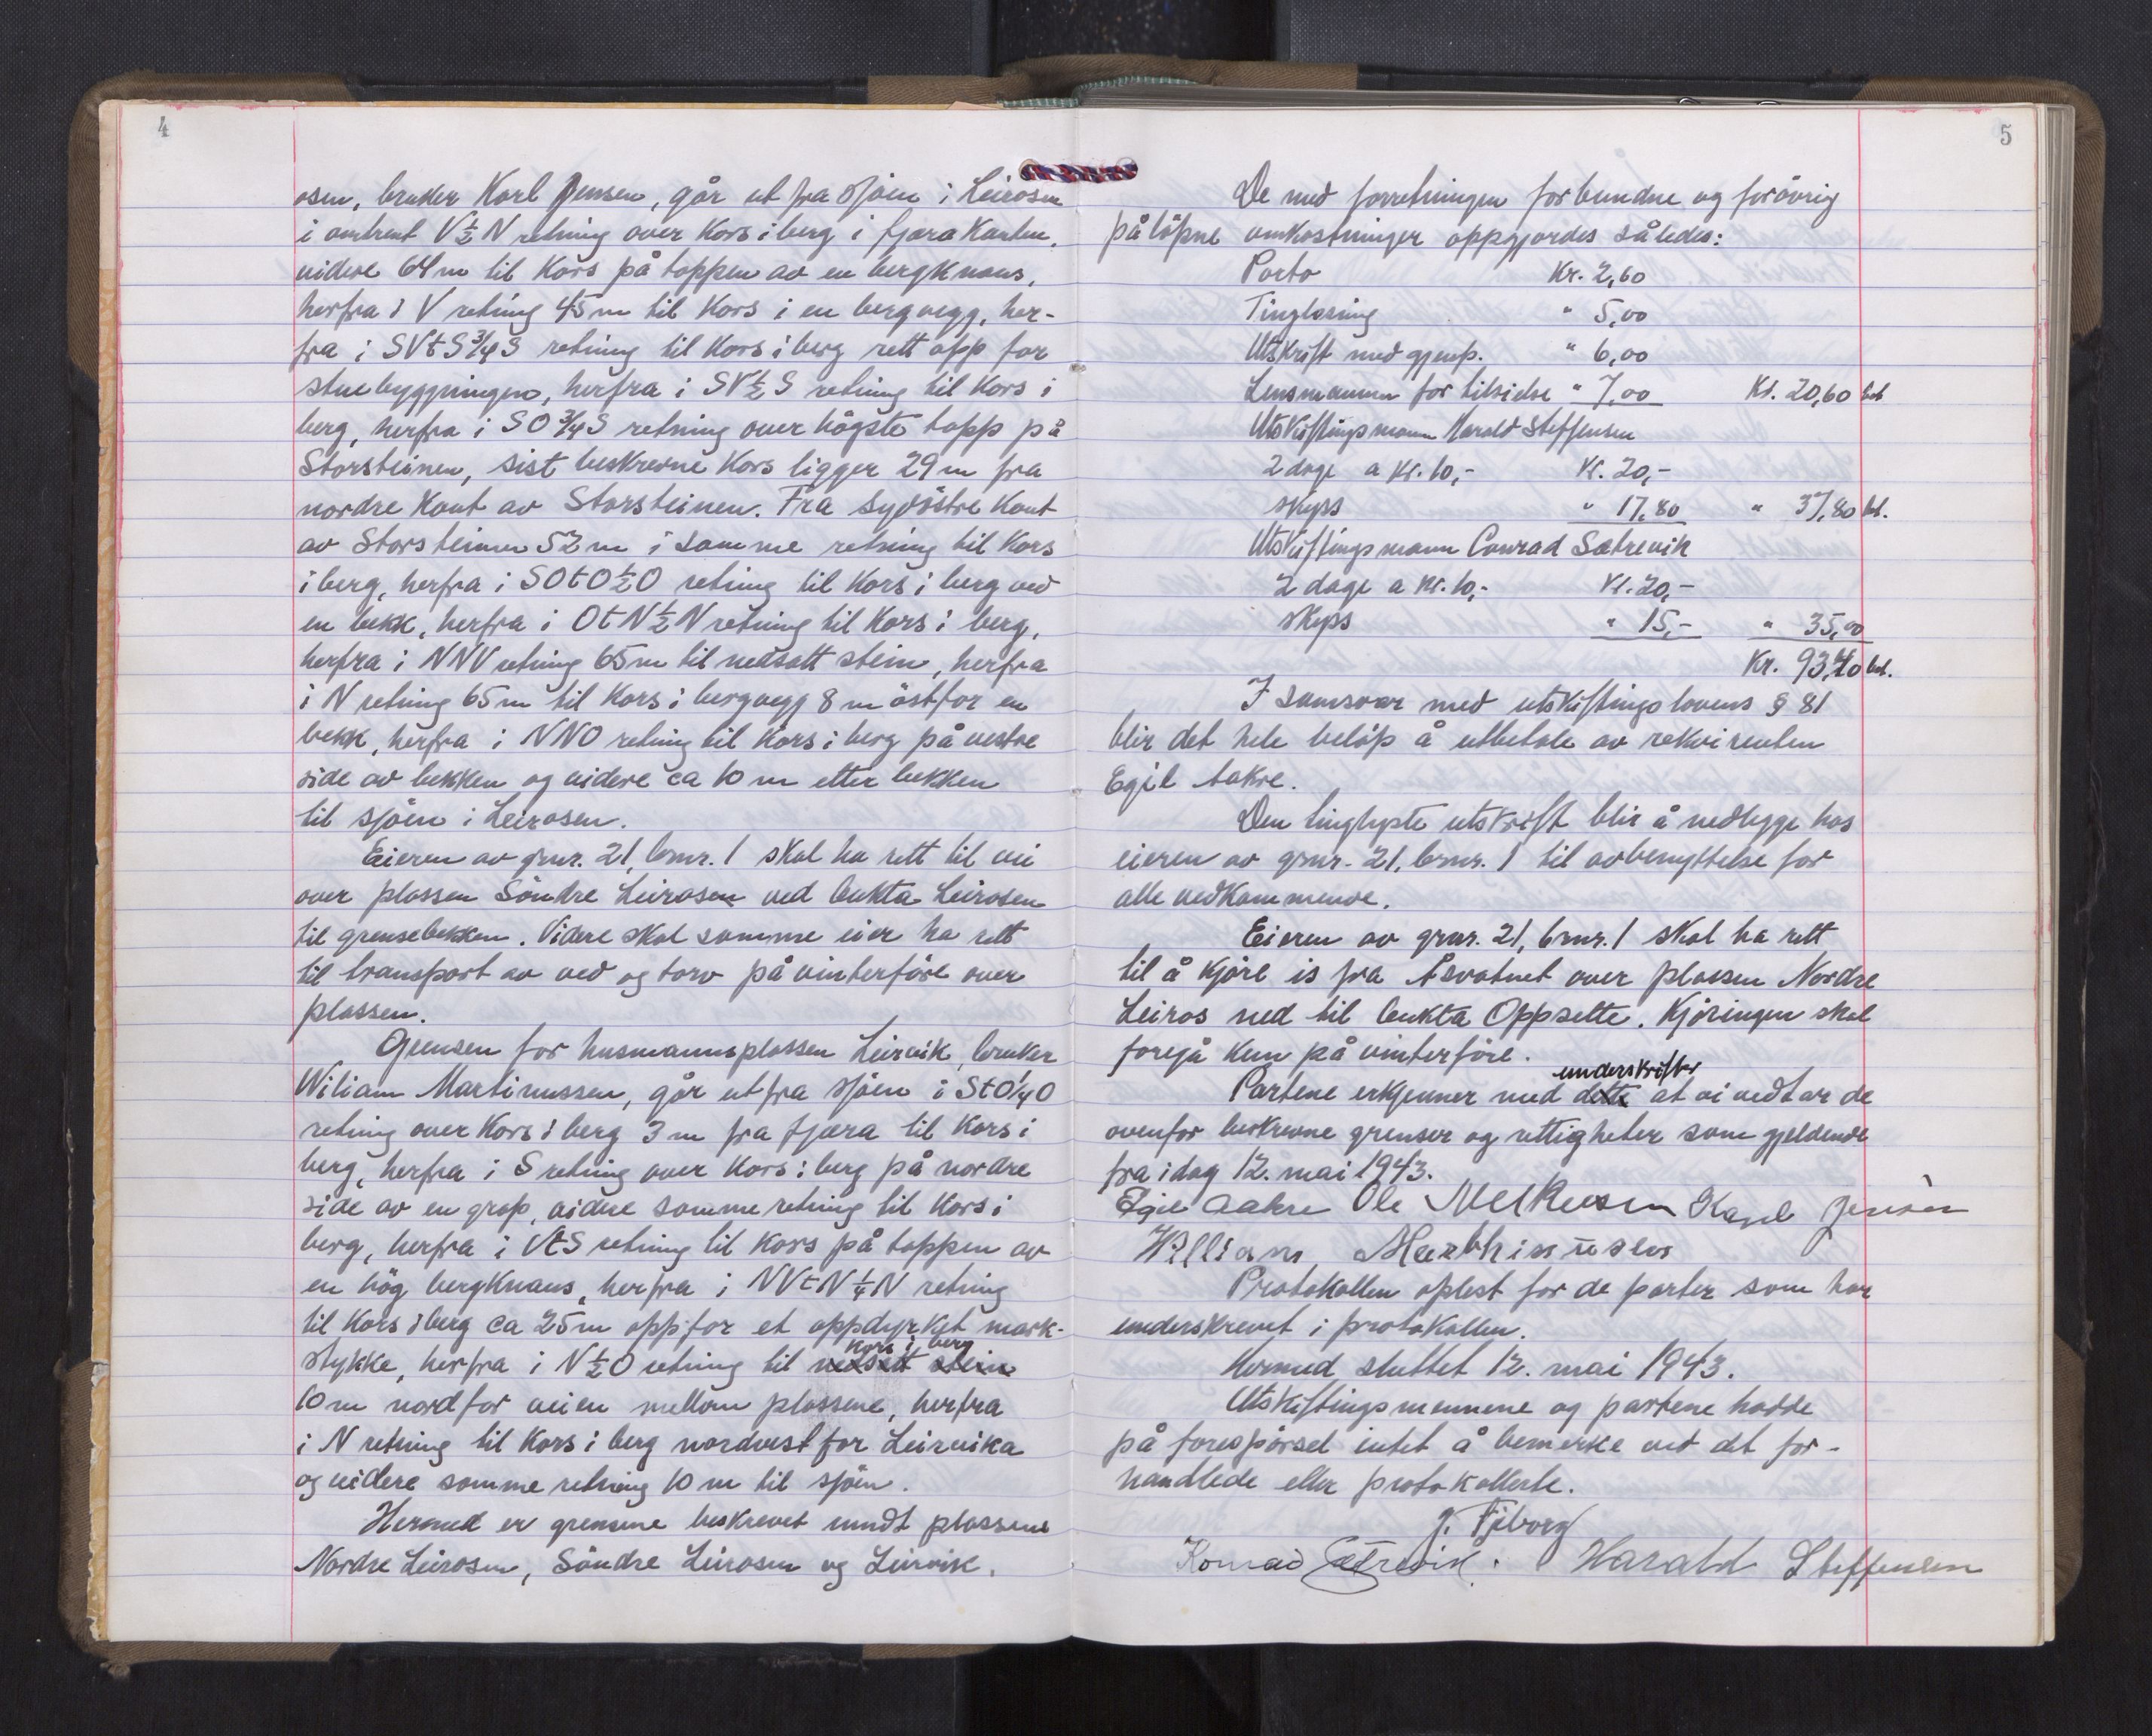 4
osen, bruker Karl Jensen, går ut fra sjöen i Leirosen
i omtrent V½N retning over Kors i berg i fjæra Kanten,
videre 64 m til Kors på toppen av en bergknaus,
herfra i V retning 45 m til Kors i en bergvegg, her-
fra i SVtS¾S retning til Kors i berg rett opp for
stuebyggningen, herfra i SV½S retning til Kors i
berg, herfra i SO¾S retning over högste topp på
Storsteinen, sist beskrevne Kors ligger 29 m fra
nordre Kant av Storsteinen. Fra sydöstre Kant
av Storsteinen 52 m i samme retning til Kors
i berg, herfra i SOtO½O retning til Kors i berg ved
en bekk, herfra i OtN½N retning til Kors i berg,
herfra i NNV retning 65 m til nedsatt stein, herfra
i N retning 65 m til Kors i bergvegg 8 m östfor en
bekk, herfra i NNO retning til Kors i berg på vestre
side av bekken og videre ca 10 m etter bekken
til sjöen i Leirosen.
Eieren av grnr. 21, brnr. 1 skal ha rett til vei
over plassen Söndre Leirosen ved bukta Leirosen
til grensebekken. Videre skal samme eier ha rett
til transport av ved og torv på vinterföre over
plassen.
Grensen for husmannsplassen Leirvik, bruker
Wiliam Martinussen, går ut fra sjöen i StO¼O
retning over Kors i berg 3 m fra fjæra til Kors i
berg, herfra i S retning over Kors i berg på nordre
side av en grop, videre samme retning til Kors i
berg, herfra i VtS retning til Kors på toppen av
en hög bergknaus, herfra i NVtN¼N retning
til Kors i berg ca 25 m opp for et oppdyrket mark-
stykke, herfra i N½O retning til nedsatt stein Kors i berg
10 m nordfor veien mellom plassene, herfra
i N retning til Kors i berg nordvest for Leirvika
og videre samme retning 10 m til sjöen.
Hermed er grensene beskrevet rundt plassene
Nordre Leirosen, Söndre Leirosen og Leirvik.
5
De med forretningen forbundne og forövrig
pålöpne omkostninger oppgjordes således:
Porto Kr. 2,60
Tinglesing " 5,00
Utskrift med gjenp. " 6,00
Lensmannen for tilsidse " 7,00 Kr. 20,60 bet
Utskiftingsmann Harald Steffensen
2 dage a Kr. 10,- Kr. 20,-
skyss " 17,80 " 37,80 bet.
Utskiftingsmann Conrad Sætrevik
2 dage a Kr. 10,- Kr. 20,-
skyss " 15,- " 35,00
Kr. 93,40 bet.
I samsvar med utskiftingslovens § 81
blir det hele belöp å utbetale av rekvirenten
Egil Aakre.
Den tinglyste utskrift blir å nedlegge hos
eieren av grnr. 21, brnr. 1 til avbenyttelse for
alle vedkommende.
Eieren av grnr. 21, brnr. 1 skal ha rett
til å kjöre is fra Åsvatnet over plassen Nordre
Leiros ned til bukta Oppsette. Kjöringen skal
foregå kun på vinterföre.
Partene erkjenner med dette underskrifter at vi vedtar de
ovenfor beskrevne grenser og rettigheter som gjeldende
fra idag 12. mai 1943.
Egil Aakre Ole Melkersen Karl Jensen
William Marthinussen
Protokollen oplest for de parter som har
underskrevet i protokollen.
Hermed sluttet 12. mai 1943.
Utskiftingsmennene og partene hadde
på forespörsel intet å bemerke ved det for-
handlede eller protokollerte.
J. Fiborg
Konrad Sætrevik. Harald Steffensen